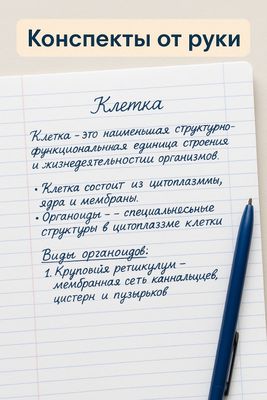 Конспекты от руки
Клетка
Клетка – это наименьшая структурно-
функциональнная единица строения
и жизнедеятельностии организмов.
• Клетка состоит из цитоплазммы,
ядра и мембраны.
• Органоиды - - специальнесьные
структуры в цитоплаззме клетки
Виды органоидов:
1. Круповый ретшкулум –
мембранная сеть каннальццев,
цистерн и пузырьков